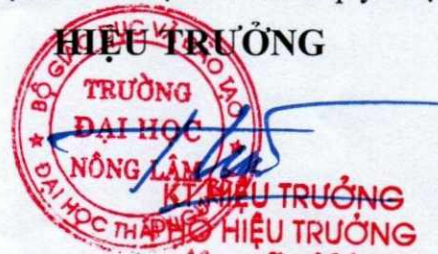 HIỆU TRƯỞNG
BỘ GIÁO DỤC VÀ ĐÀO TẠO
TRƯỜNG
ĐẠI HỌC
NÔNG LÂM
ĐẠI HỌC THÁI NGUYÊN
KT HIỆU TRƯỞNG
PHÓ HIỆU TRƯỞNG